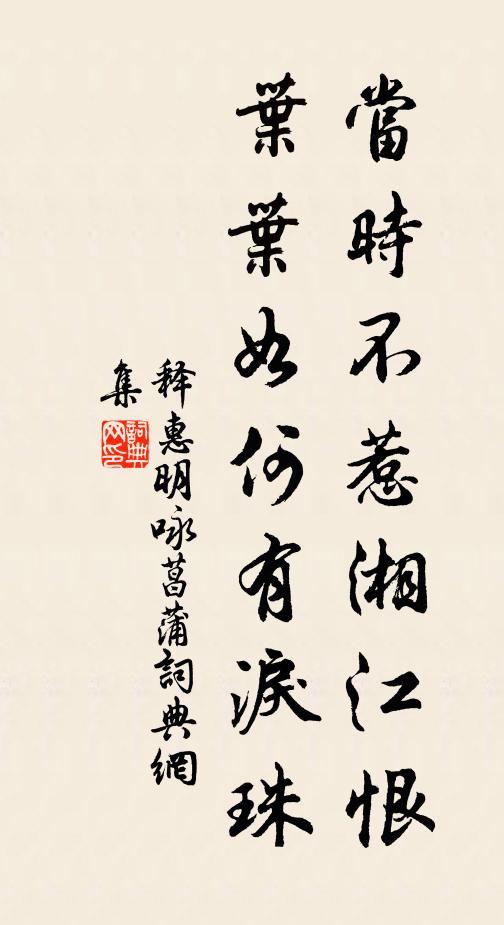 當時不惹湘江恨
葉葉如何有淚珠
释惠明咏菖蒲詞典網
集
詞典
网印